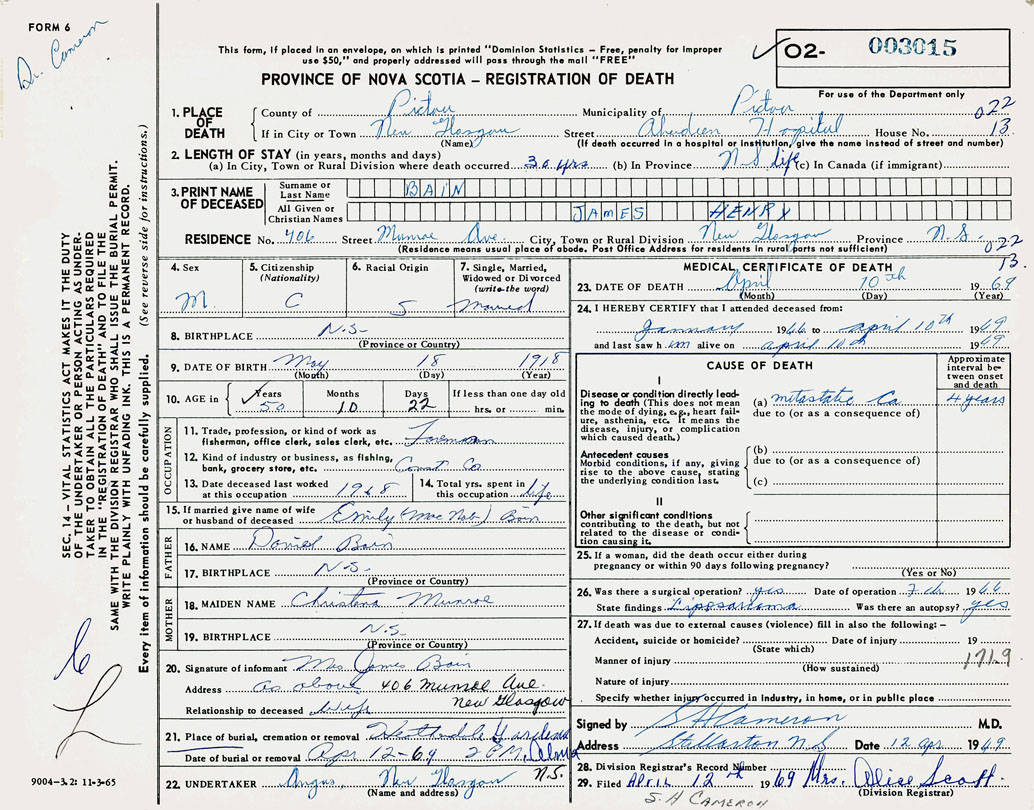 FORM 6
Dr. Cameron
This form, if placed in an envelope, on which is printed "Dominion Statistics – Free, penalty for improper
use $50," and properly addressed will pass through the mail "FREE"
PROVINCE OF NOVA SCOTIA – REGISTRATION OF DEATH
✓ 02- 003015
For use of the Department only
1. PLACE OF DEATH
County of Pictou Municipality of Pictou 022
If in City or Town New Glasgow Street Aberdeen Hospital House No. 13
(Name) (If death occurred in a hospital or institution, give the name instead of street and number)
2. LENGTH OF STAY (in years, months and days)
(a) In City, Town or Rural Division where death occurred 30 yrs (b) In Province N S life (c) In Canada (if immigrant)
3. PRINT NAME OF DECEASED
Surname or Last Name BAIN
All Given or Christian Names JAMES HENRY
RESIDENCE No. 406 Street Munroe Ave. City, Town or Rural Division New Glasgow Province N.S. 022
(Residence means usual place of abode. Post Office Address for residents in rural parts not sufficient) 13.
4. Sex M.
5. Citizenship (Nationality) C
6. Racial Origin S
7. Single, Married, Widowed or Divorced (write the word) Married
8. BIRTHPLACE N.S.
(Province or Country)
9. DATE OF BIRTH May 18 1918
(Month) (Day) (Year)
10. AGE in ✓ Years 50 Months 10 Days 22 If less than one day old hrs. or min.
OCCUPATION
11. Trade, profession, or kind of work as fisherman, office clerk, sales clerk, etc. Foreman
12. Kind of industry or business, as fishing, bank, grocery store, etc. Const Co
13. Date deceased last worked at this occupation 1968
14. Total yrs. spent in this occupation life
15. If married give name of wife or husband of deceased Emily (MacNab) Bain
FATHER
16. NAME Daniel Bain
17. BIRTHPLACE N.S.
(Province or Country)
MOTHER
18. MAIDEN NAME Christena Munroe
19. BIRTHPLACE N.S.
(Province or Country)
20. Signature of informant Mrs James Bain
Address as above 406 Munroe Ave.
New Glasgow
Relationship to deceased Wife
21. Place of burial, cremation or removal Gardens
Date of burial or removal Apr. 12-69 2 P.M. Alma
N.S.
22. UNDERTAKER Angus, New Glasgow
(Name and address)
MEDICAL CERTIFICATE OF DEATH
23. DATE OF DEATH April 10th 1969
(Month) (Day) (Year)
24. I HEREBY CERTIFY that I attended deceased from:
January 1966 to april 10th 1969
and last saw him alive on april 10th 1969
CAUSE OF DEATH
Approximate interval between onset and death
I
Disease or condition directly leading to death (This does not mean the mode of dying, e.g., heart failure, asthenia, etc. It means the disease, injury, or complication which caused death.)
(a) metastatic Ca 4 years
due to (or as a consequence of)
Antecedent causes
Morbid conditions, if any, giving rise to the above cause, stating the underlying condition last.
(b)
due to (or as a consequence of)
(c)
II
Other significant conditions contributing to the death, but not related to the disease or condition causing it.
25. If a woman, did the death occur either during pregnancy or within 90 days following pregnancy?
(Yes or No)
26. Was there a surgical operation? yes Date of operation Feb 1966
State findings Liposarcoma Was there an autopsy? yes
27. If death was due to external causes (violence) fill in also the following: –
Accident, suicide or homicide? Date of injury 19
(State which)
Manner of injury 171.9
(How sustained)
Nature of injury
Specify whether injury occurred in industry, in home, or in public place
Signed by S H Cameron M.D.
Address Stellarton N S Date 12 apr 1969
28. Division Registrar's Record Number
29. Filed APRIL 12th 1969 Mrs. Alice Scott
(Division Registrar)
S. H CAMERON
SEC. 14 – VITAL STATISTICS ACT MAKES IT THE DUTY
OF THE UNDERTAKER OR PERSON ACTING AS UNDER-
TAKER TO OBTAIN ALL THE PARTICULARS REQUIRED
IN THE "REGISTRATION OF DEATH" AND TO FILE THE
SAME WITH THE DIVISION REGISTRAR WHO SHALL ISSUE THE BURIAL PERMIT.
WRITE PLAINLY WITH UNFADING INK. THIS IS A PERMANENT RECORD.
Every item of information should be carefully supplied. (See reverse side for instructions.)
9004-3.2: 11-3-65